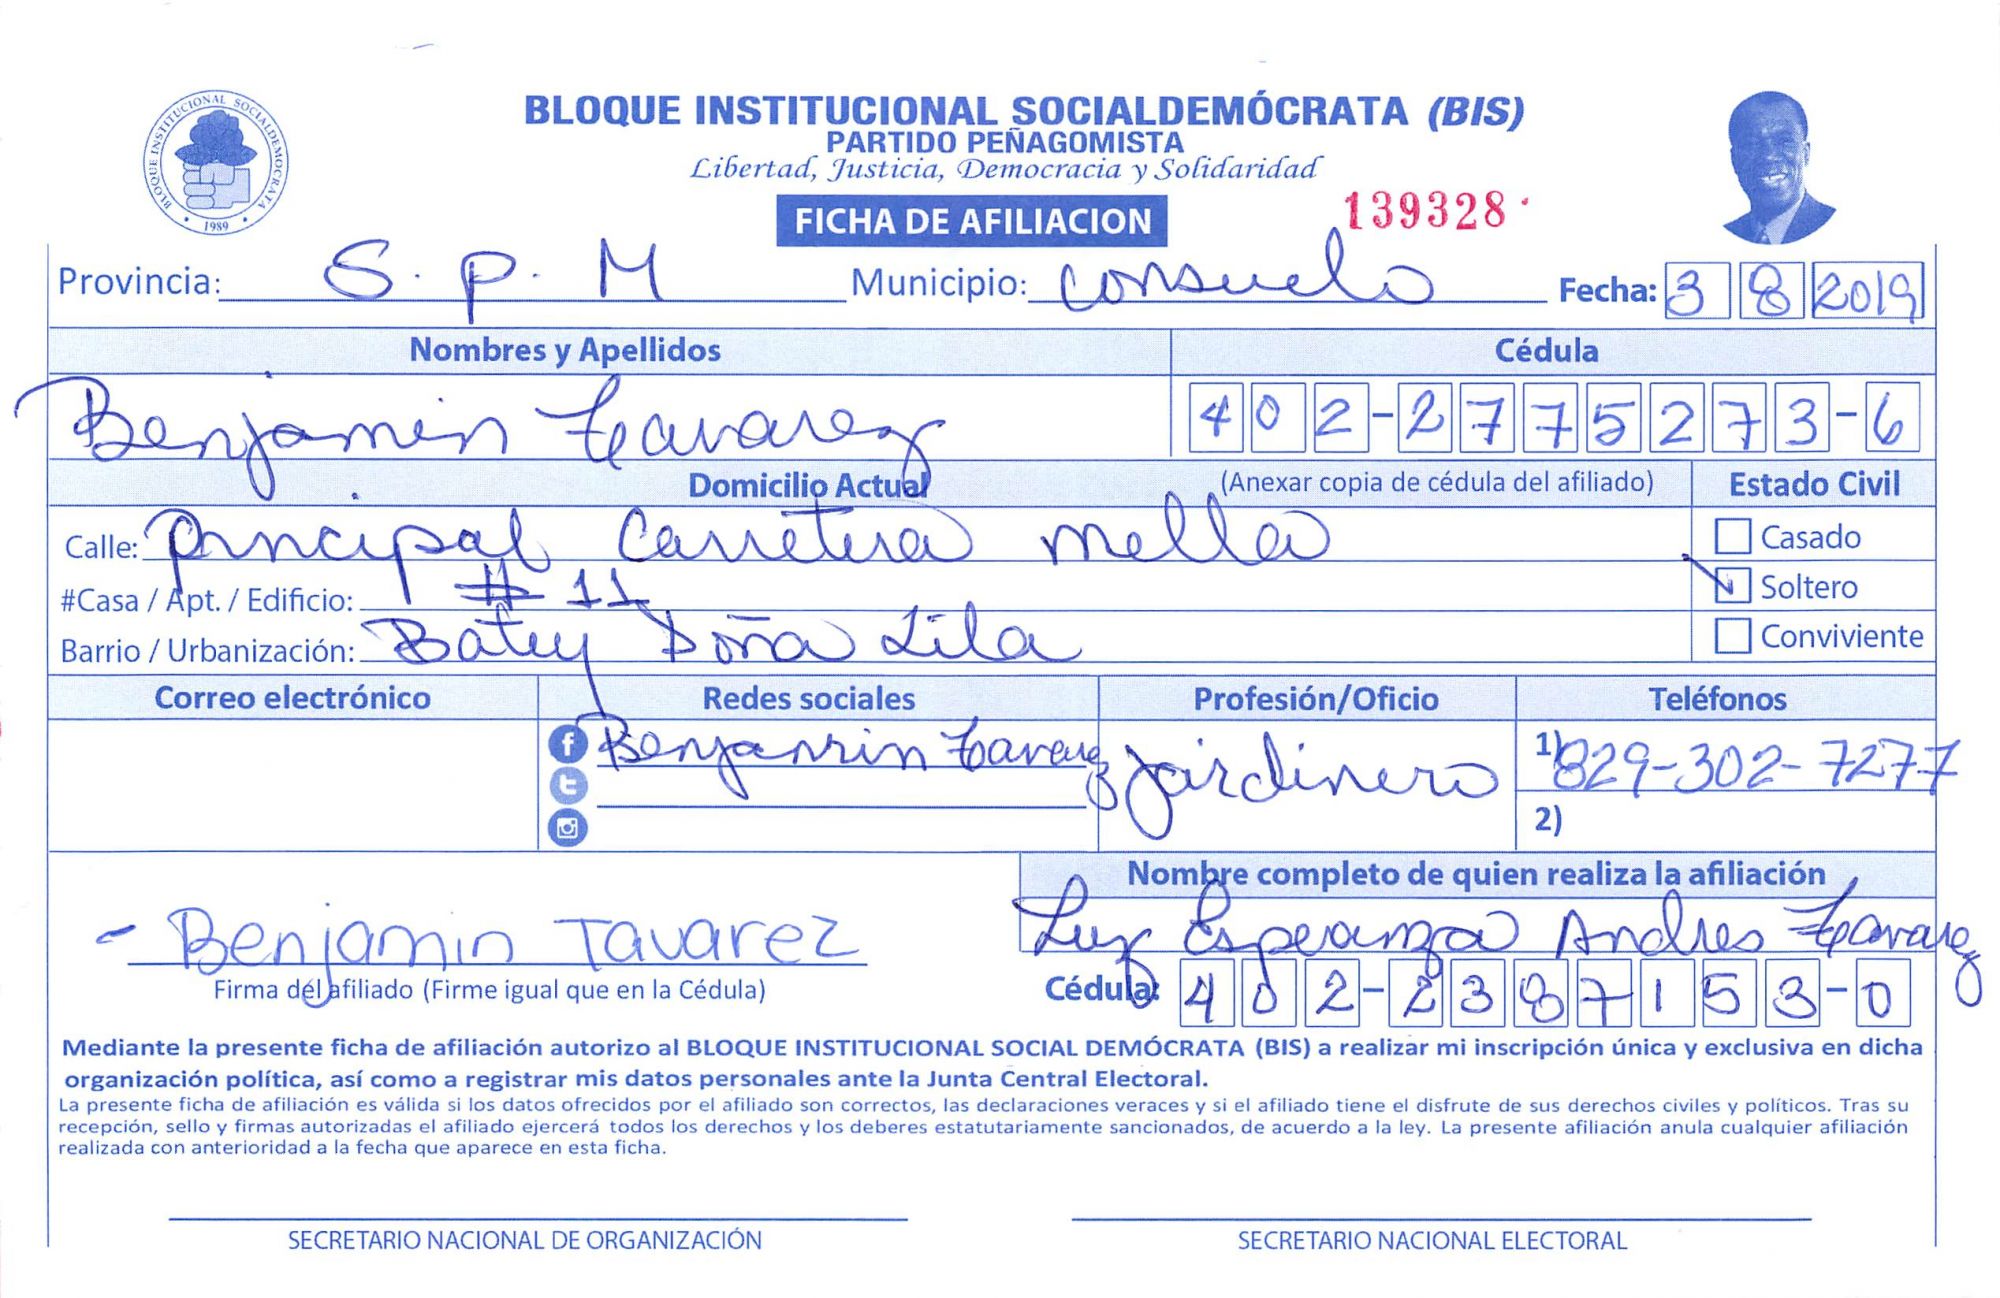 BLOQUE INSTITUCIONAL SOCIALDEMOCRATA
1989
BLOQUE INSTITUCIONAL SOCIALDEMÓCRATA (BIS)
PARTIDO PEÑAGOMISTA
Libertad, Justicia, Democracia y Solidaridad
FICHA DE AFILIACION 139328
Provincia: S. P. M Municipio: Consuelo Fecha: 3 8 2019
Nombres y Apellidos Cédula
Benjamin Tavarez 402-2775273-6
Domicilio Actual (Anexar copia de cédula del afiliado) Estado Civil
Calle: principal Carretera mella Casado
#Casa / Apt. / Edificio: # 11 Soltero
Barrio / Urbanización: Batey Doña Lila Conviviente
Correo electrónico Redes sociales Profesión/Oficio Teléfonos
Benjamin Tavarez jardinero 1) 829-302-7277
2)
Nombre completo de quien realiza la afiliación
- Benjamin Tavarez Luz Esperanza Andres Tavarez
Firma del afiliado (Firme igual que en la Cédula) Cédula: 402-2387153-0
Mediante la presente ficha de afiliación autorizo al BLOQUE INSTITUCIONAL SOCIAL DEMÓCRATA (BIS) a realizar mi inscripción única y exclusiva en dicha
organización política, así como a registrar mis datos personales ante la Junta Central Electoral.
La presente ficha de afiliación es válida si los datos ofrecidos por el afiliado son correctos, las declaraciones veraces y si el afiliado tiene el disfrute de sus derechos civiles y políticos. Tras su
recepción, sello y firmas autorizadas el afiliado ejercerá todos los derechos y los deberes estatutariamente sancionados, de acuerdo a la ley. La presente afiliación anula cualquier afiliación
realizada con anterioridad a la fecha que aparece en esta ficha.
SECRETARIO NACIONAL DE ORGANIZACIÓN SECRETARIO NACIONAL ELECTORAL